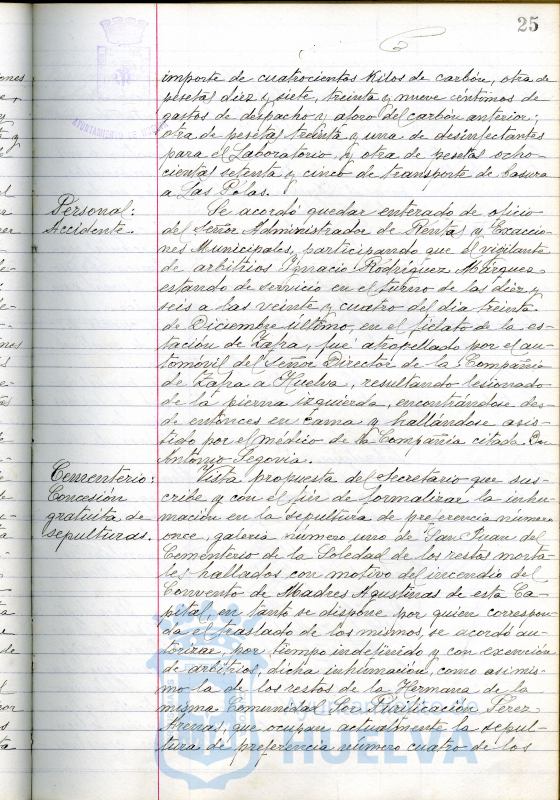 25
importe de cuatrocientos kilos de carbón, otra de
pesetas diez y siete, treinta y nueve céntimos de
gastos de despacho y aforo del carbón anterior;
otra de pesetas treinta y una de desinfectantes
para el Laboratorio, y otra de pesetas ocho-
cientas setenta y cinco de transporte de basura
a Las Pólas.
Personal:
Accidente.
Se acordó quedar enterado de oficio
del Señor Administrador de Rentas y Exaccio-
nes Municipales, participando que el vigilante
de arbitrios Ignacio Rodríguez Márquez
estando de servicio en el turno de las diez y
seis a las veinte y cuatro del día treinta
de Diciembre último, en el fielato de la es-
tación de Zafra, fué atropellado por el au-
tomóvil del Señor Director de la Compañía
de Zafra a Huelva, resultando lesionado
de la pierna izquierda, encontrándose des-
de entonces en cama y hallándose asis-
tido por el médico de la Compañía citada Don
Antonio Segovia.
Cementerio:
Concesión
gratuita de
sepulturas.
Vista propuesta del Secretario que sus-
cribe y con el fin de formalizar la inhu-
mación en la sepultura de preferencia número
once, galería número uno de San Juan del
Cementerio de la Soledad de los restos morta-
les hallados con motivo del incendio del
Convento de Madres Agustinas de esta Ca-
pital, en tanto se dispone por quien correspon-
da el traslado de los mismos, se acordó au-
torizar, por tiempo indefinido y con exención
de arbitrios, dicha inhumación, como asimis-
mo la de los restos de la Hermana de la
misma Comunidad Sor Purificación Pérez
Arenas, que ocupan actualmente la sepul-
tura de preferencia número cuatro de los
Ayuntamiento de
HUELVA